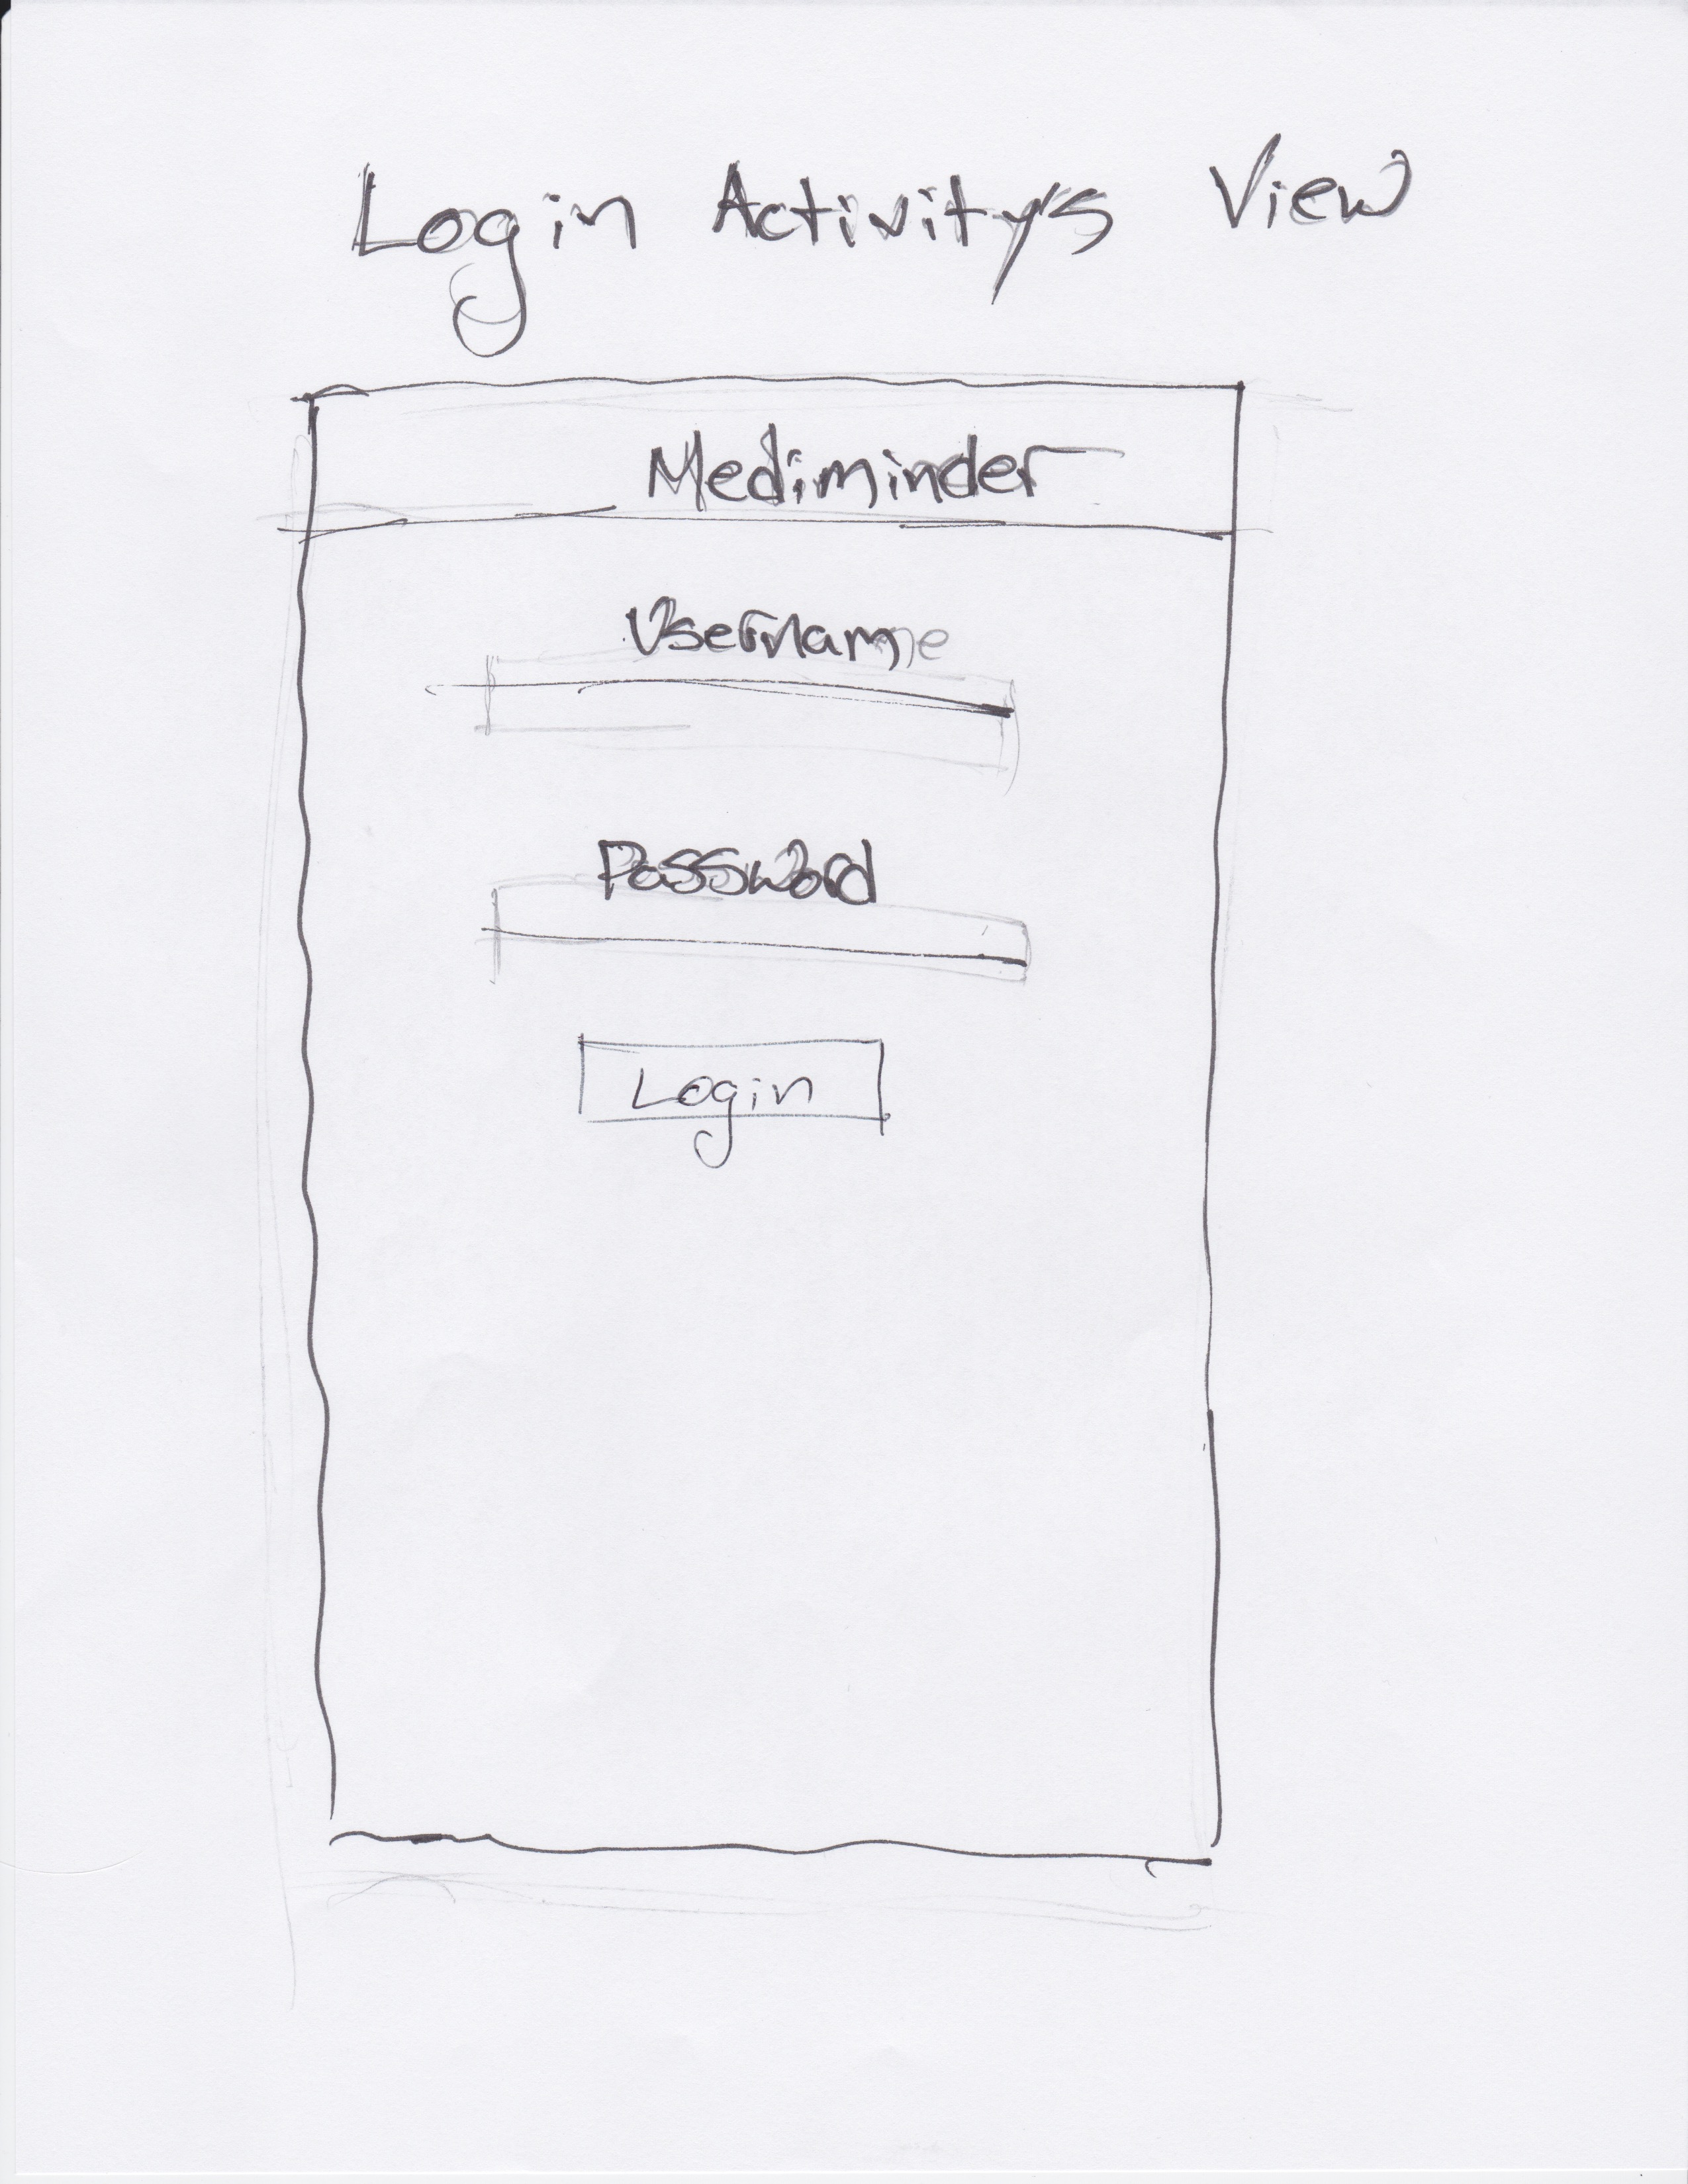 Login Activity's View
Mediminder
Username
Password
Login